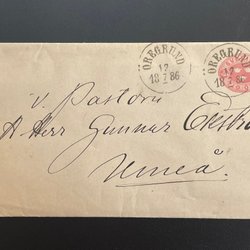 ÖREGRUND ÖREGRUND
12 12
18 7 86 18 7 86
v. Pastorn
Herr Gunnar Ekstr
Umeå